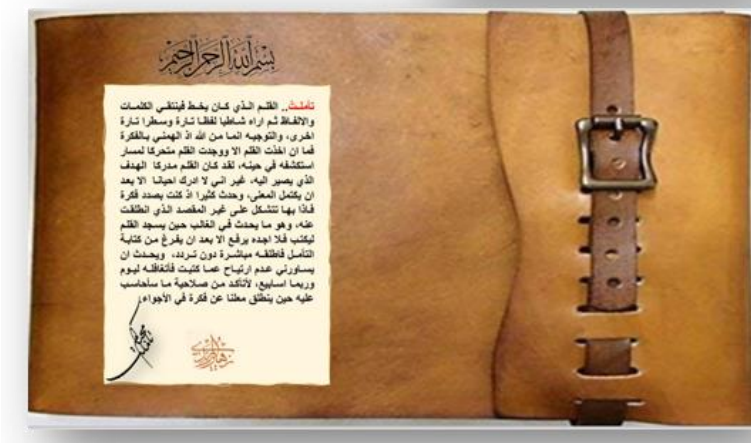 بسم الله الرحمن الرحيم
تأملتُ.. القلم الذي كان يخط فينتقي الكلمات
والالفاظ ثم اراه شاطبا لفظا تارة وسطرا تارة
اخرى، والتوجيه انما من الله اذ الهمني بالفكرة
فما ان اخذت القلم الا ووجدت القلم متحركا لمسار
استكشفه في حينه، لقد كان القلم مدركا الهدف
الذي يصير اليه، غير اني لا ادرك احيانا الا بعد
ان يكتمل المعنى، وحدث كثيرا اذ كنت بصدد فكرة
فاذا بها تتشكل على غير المقصد الذي انطلقت
عنه، وهو ما يحدث في الغالب حين يسجد القلم
ليكتب فلا اجده يرفع الا بعد ان يفرغ من كتابة
التأمل فاطلقه مباشرة دون تردد، ويحدث ان
يساورني عدم ارتياح عما كتبت فأتغافله ليوم
وربما اسابيع، لأتأكد من صلاحية ما سأحاسب
عليه حين ينطلق معلنا عن فكرة في الأجواء.